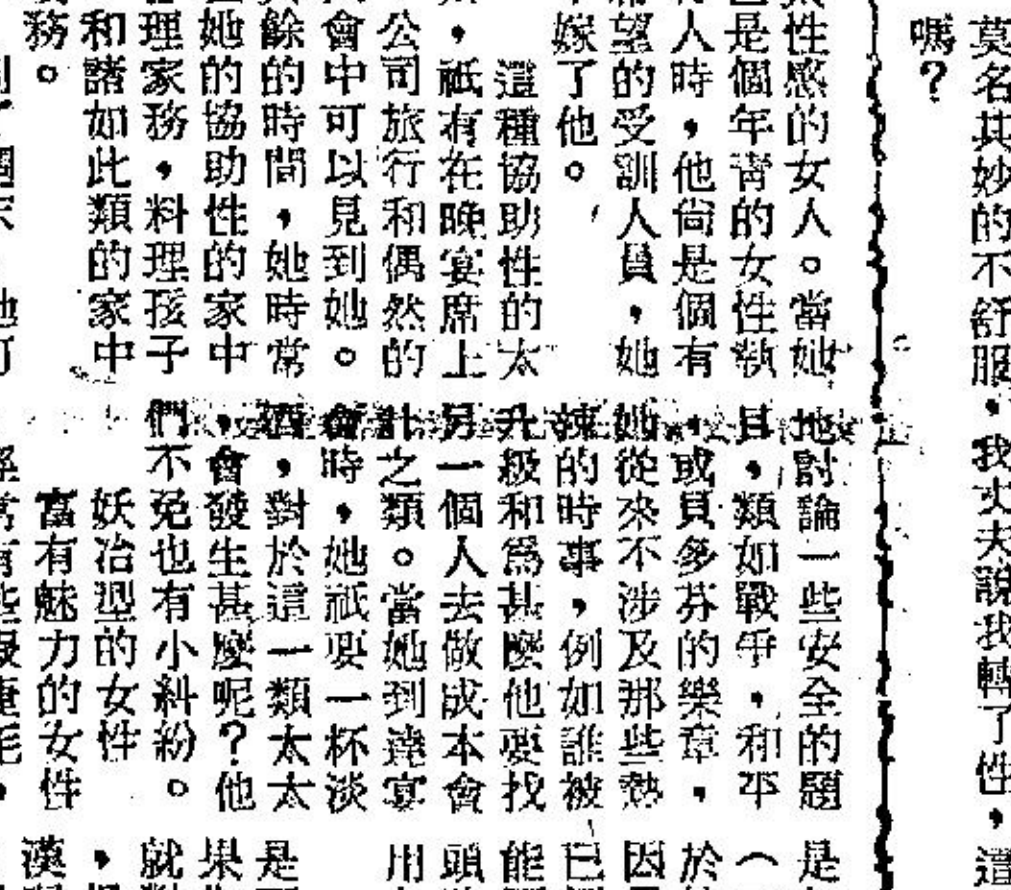 莫名其妙的不舒服,我丈夫說我轉了性,這
嗎?
性感的女人。當她
是個年青的女性執
人時,他尙是個有
望的受訓人員,她
嫁了他。
這種協助性的太
,祇有在晚宴席上
公司旅行和偶然的
會中可以見到她。
餘的時間,她時常
她的協助性的家中
理家務,料理孩子
和諸如此類的家中
務。
地討論一些安全的題
目,類如戰爭,和平
,或貝多芬的樂章,
她從來不涉及那些熱
辣的時事,例如誰被
升級和爲甚麼他要找
另一個人去做成本會
計之類。當她到達宴
會時,她祇要一杯淡
酒,對於這一類太太
,會發生甚麼呢?他
們不免也有小糾紛。
妖冶型的女性
富有魅力的女性
是
(
於
因
已
能
頭
用
是
果
就
,
漢